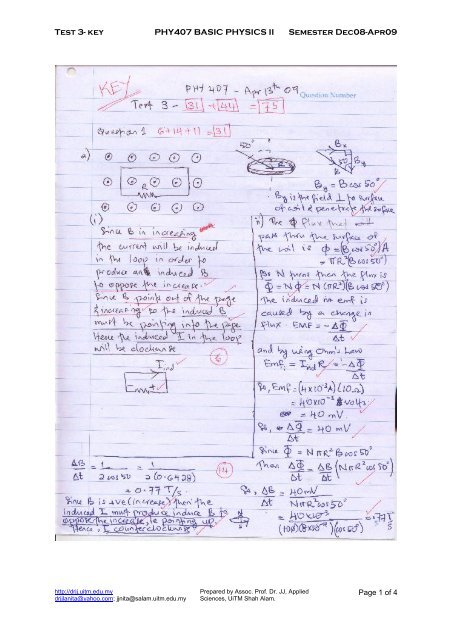 TEST 3- KEY PHY407 BASIC PHYSICS II SEMESTER DEC08-APR09
KEY
PHY 407 - Apr 13th 09
Question Number
Test 3 - 31 + 44 = 75
Question 1 6+14+11 = 31
a)
R
(i)
Since B is increasing
the current will be induced
in the loop in order to
produce an induced B
to oppose the increase.
Since B points out of the page
& increasing so the induced B
must be pointing into the page.
Hence the induced I in the loop
will be clockwise
6
Iind
50°
R
Bx
50° By
B
By = B cos 50°
By is the field ⊥ to surface
of coil & penetrate the surface
ii) The Φ flux that will
pass thru the surface of
the coil is Φ = (B cos 50°) A
= πR²(B cos 50°)
For N turns then the flux is
Φ = NΦ = N (πR²)(B cos 50°)
The induced emf is
caused by a change in
flux. EMF = - ΔΦ
Δt
and by using Ohm's Law
Emf = Iind R = - ΔΦ
Δt
So, Emf = (4×10⁻³A)(10Ω)
= 40×10⁻³ volts
= 40 mV.
So, ΔΦ = 40 mV
Δt
Since Φ = NπR² B cos 50°
Then ΔΦ = ΔB (NπR² cos 50°)
Δt Δt
So, ΔB = 40 mV
Δt NπR² cos 50°
= 40×10⁻³ = 0.77 T/s
(cos 50°)
ΔB = 1 = 1
Δt 2 cos 50 2 (0.6428)
= 0.77 T/s
14
Since B is +ve (increase) then the
induced I must produce induce B to
oppose the increase, ie pointing up
Hence, I counterclockwise
N
S
http://drjj.uitm.edu.my
drjjlanita@yahoo.com; jjnita@salam.uitm.edu.my
Prepared by Assoc. Prof. Dr. JJ, Applied
Sciences, UiTM Shah Alam.
Page 1 of 4